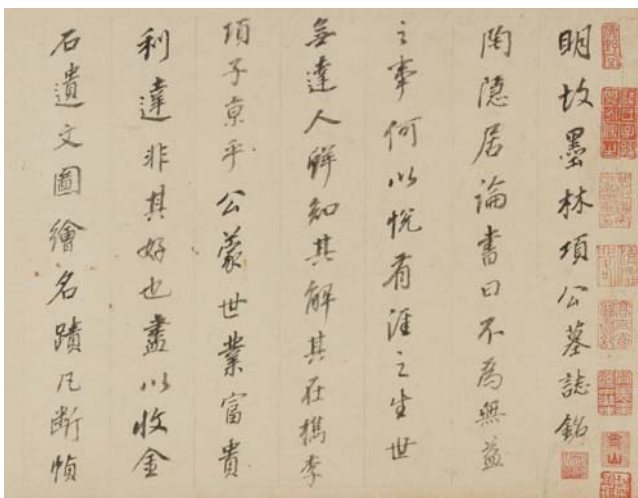 明故墨林項公墓誌銘
陶隱居論書曰不為無益
之事何以悅有涯之生世
無達人鮮知其解其在檇李
項子京乎公蒙世業富貴
利達非其好也盡以收金
石遺文圖繪名蹟凡斷幀